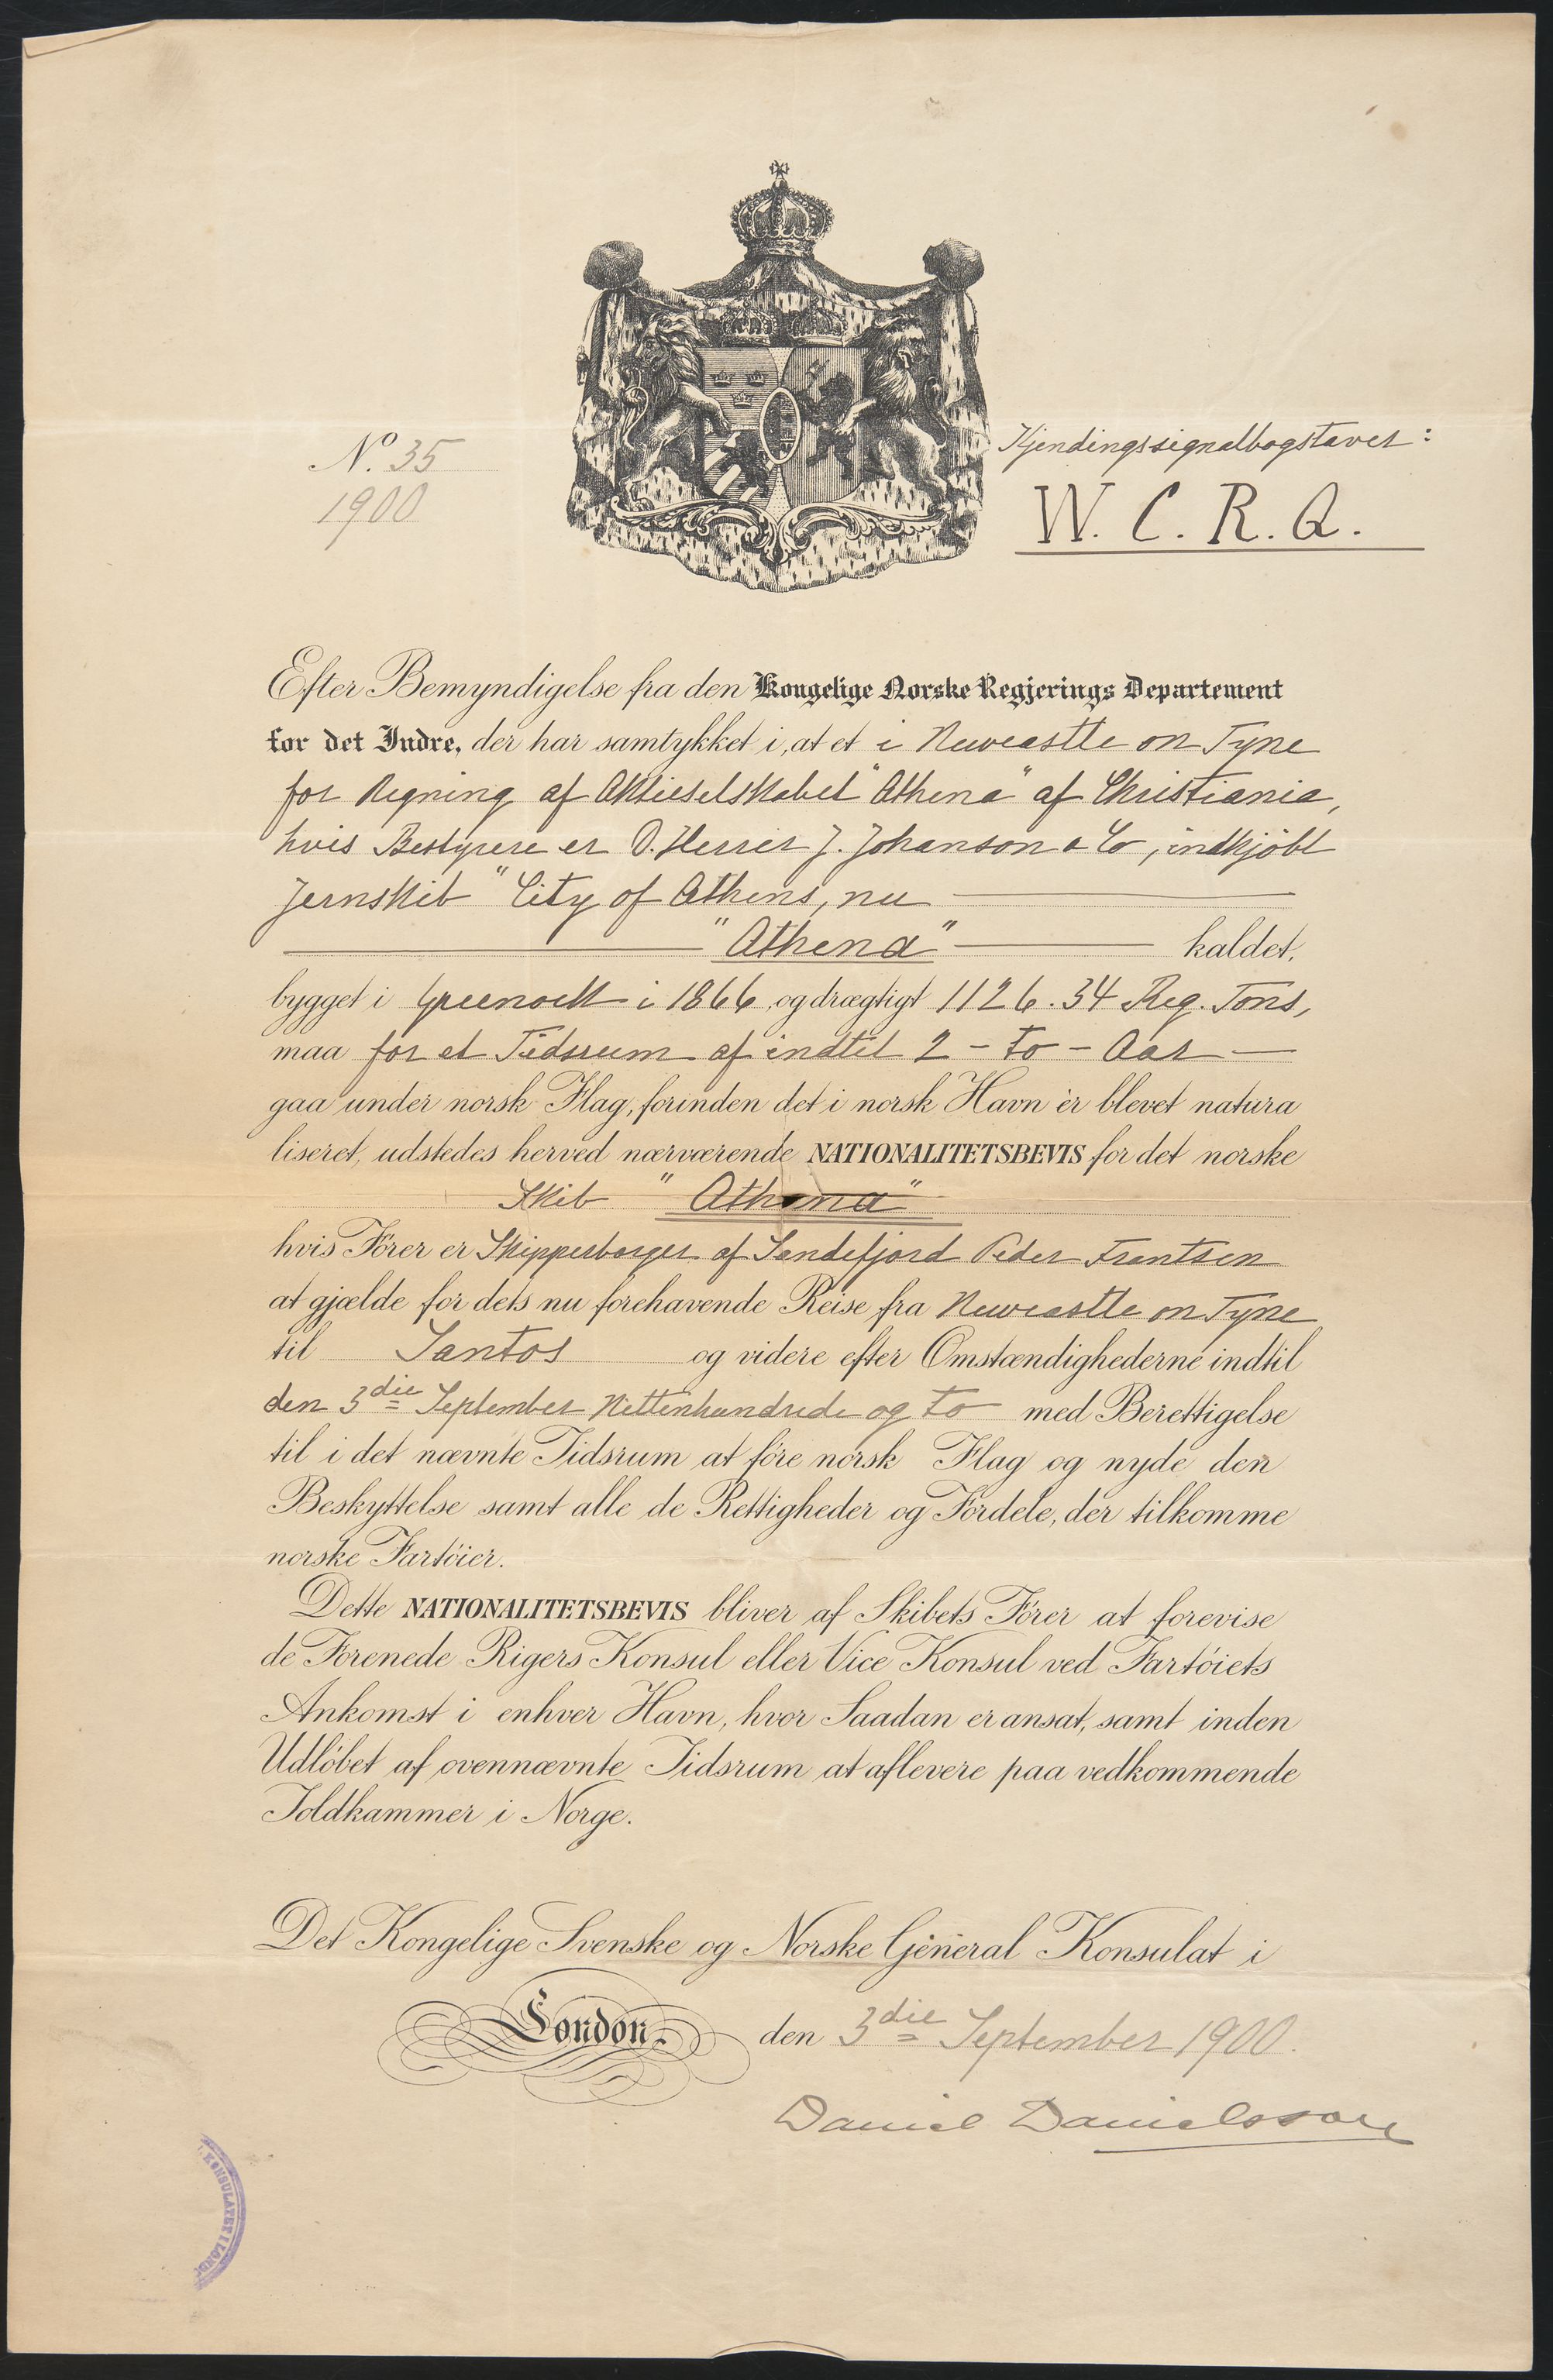 No. 35
1900
Kjendingssignalbogstaver:
W. C. R. Q.
Efter Bemyndigelse fra den Kongelige Norske Regjerings Departement
for det Indre, der har samtykket i, at et i Newcastle on Tyne
for Regning af Aktieselskabet "Athena" af Christiania,
hvis Bestyrere er D. Herrer J. Johanson & Co, indkjöbt
Jernskib "City of Athens, nu
"Athena" kaldet,
bygget i Greenock i 1866, og drægtigt 1126.34 Reg. Tons,
maa for et Tidsrum af indtil 2 - to - Aar
gaa under norsk Flag, forinden det i norsk Havn er blevet natura
liseret, udstedes herved nærværende NATIONALITETSBEVIS for det norske
Skib "Athena"
hvis Förer er Skipperborger af Sandefjord Peder Frantsen
at gjælde for dets nu forehavende Reise fra Newcastle on Tyne
til Santos og videre efter Omstændighederne indtil
den 3die September Nittenhundrede og to med Berettigelse
til i det nævnte Tidsrum at före norsk Flag og nyde den
Beskyttelse samt alle de Rettigheder og Fordele, der tilkomme
norske Fartöier.
Dette NATIONALITETSBEVIS bliver af Skibets Förer at forevise
de Forenede Rigers Konsul eller Vice Konsul ved Fartöiets
Ankomst i enhver Havn, hvor Saadan er ansat, samt inden
Udlöbet af ovennævnte Tidsrum at aflevere paa vedkommende
Toldkammer i Norge.
Det Kongelige Svenske og Norske General Konsulat i
London, den 3die September 1900.
Daniel Danielsson
KONSULATET I LOND